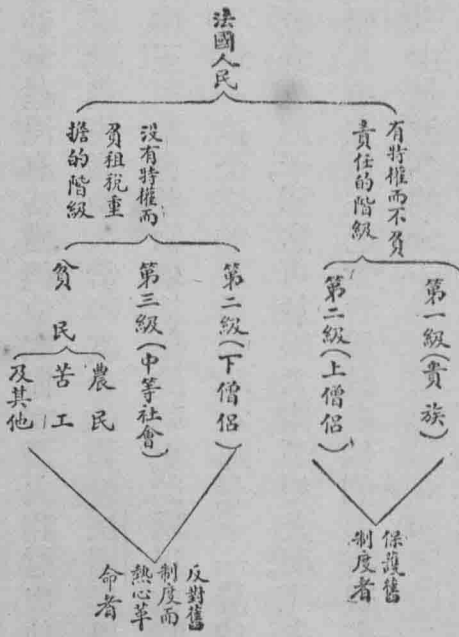 法國人民
有特權而不負
責任的階級
第一級(貴族)
第二級(上僧侶)
保護舊
制度者
沒有特權而
負租稅重
擔的階級
第二級(下僧侶)
第三級(中等社會)
貧民
農民
苦工
及其他
反對舊
制度而
熱心革
命者